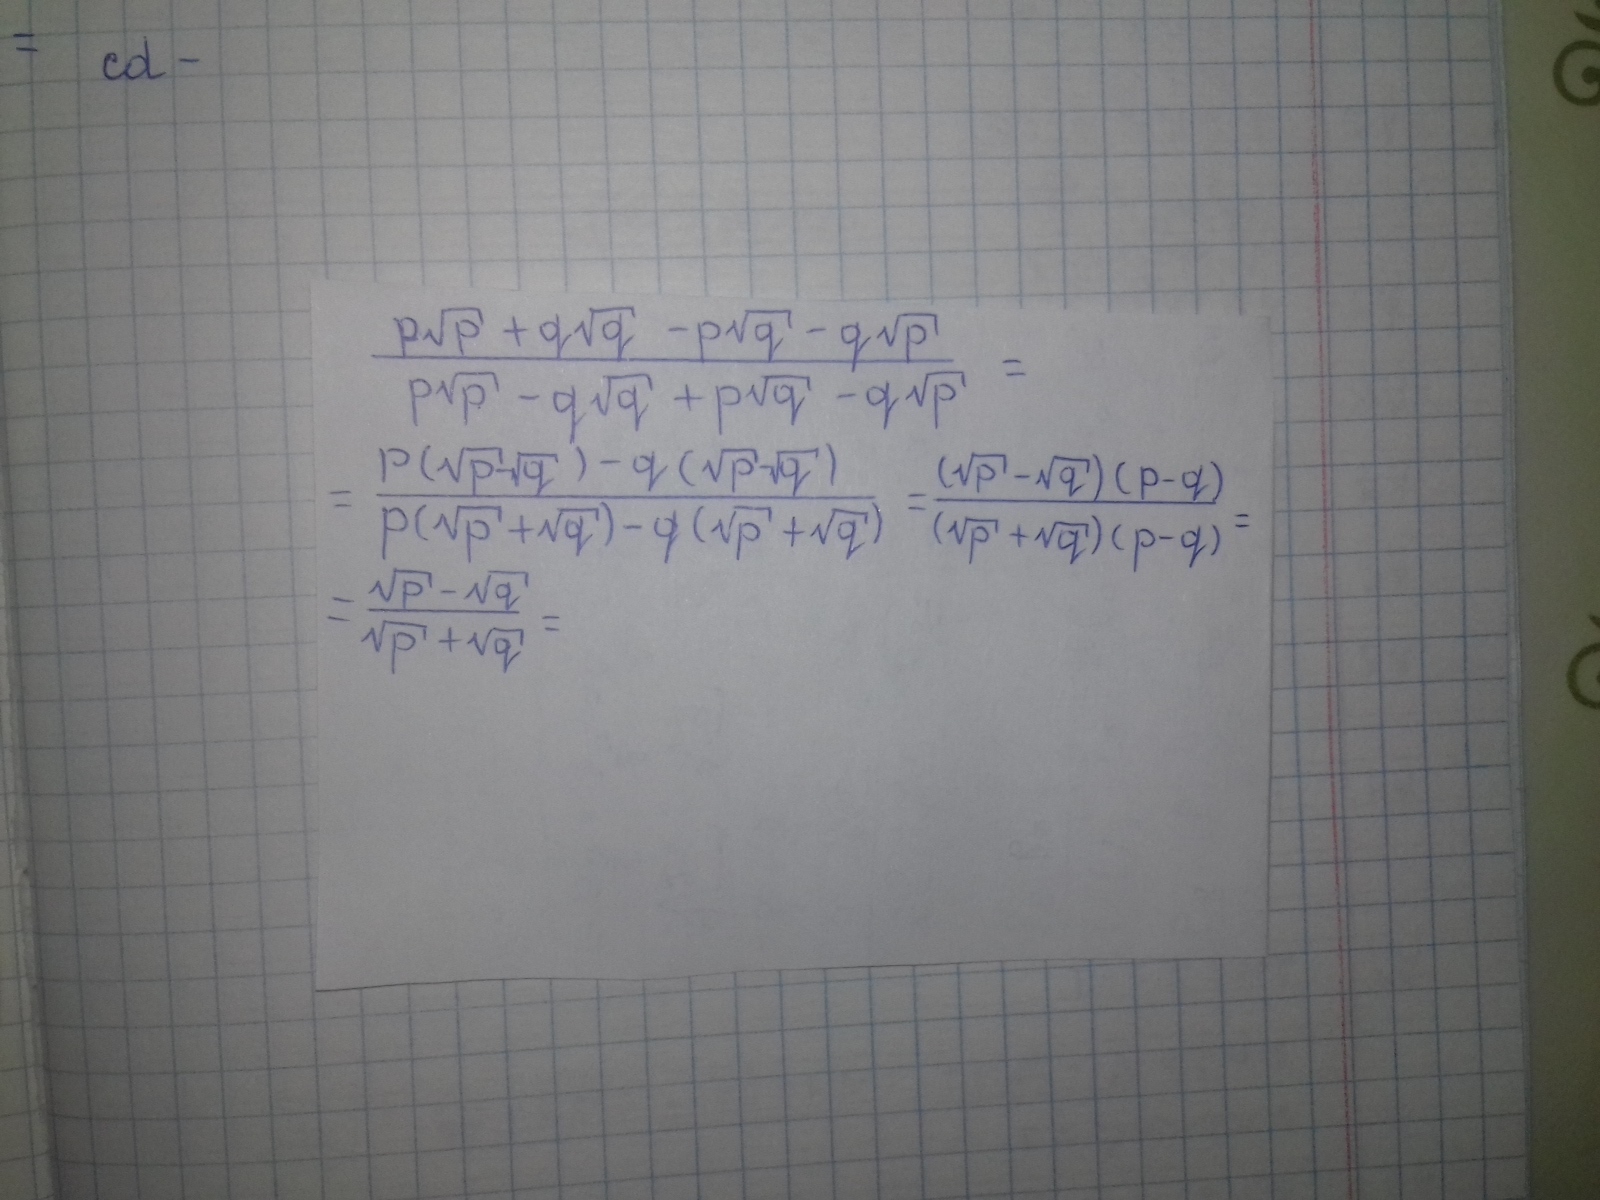 = cd -
p√p + q√q - p√q - q√p / p√p - q√q + p√q - q√p =
= p(√p-√q) - q(√p-√q) / p(√p+√q) - q(√p+√q) = (√p-√q)(p-q) / (√p+√q)(p-q) =
= √p-√q / √p+√q =